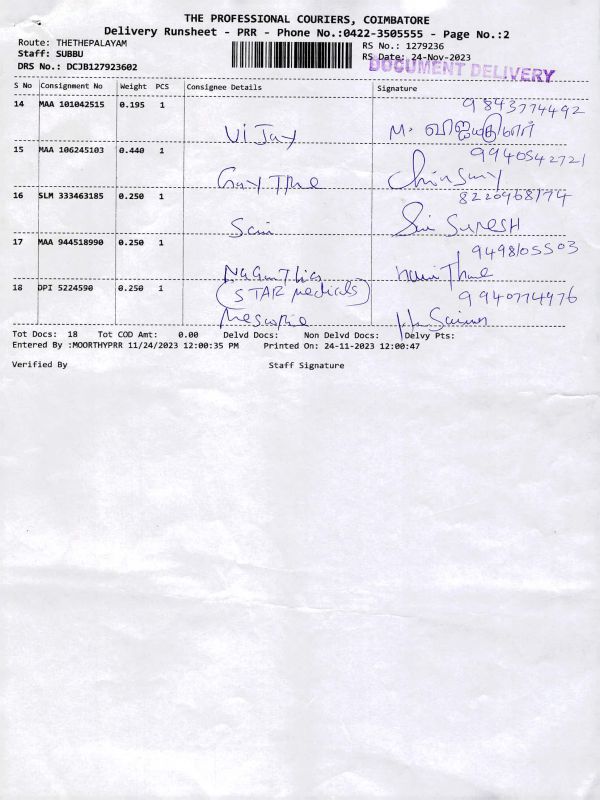 THE PROFESSIONAL COURIERS, COIMBATORE
Delivery Runsheet - PRR - Phone No.:0422-3505555 - Page No.:2
Route: THETHEPALAYAM
RS No.: 1279236
Staff: SUBBU
RS Date: 24-Nov-2023
DRS No.: DCJB127923602
DOCUMENT DELIVERY
S No Consignment No Weight PCS Consignee Details Signature
14 MAA 101042515 0.195 1
9843774492
Vijay M. விஜயகுமார்
15 MAA 106245103 0.440 1
9940542721
16 SLM 333463185 0.250 1
8220968174
Sai SURESH
17 MAA 944518990 0.250 1
9498105503
18 DPI 5224590 0.250 1
(STAR medicals)
9940774976
Tot Docs: 18 Tot COD Amt: 0.00 Delvd Docs: Non Delvd Docs: Delvy Pts:
Entered By :MOORTHYPRR 11/24/2023 12:00:35 PM Printed On: 24-11-2023 12:00:47
Verified By Staff Signature